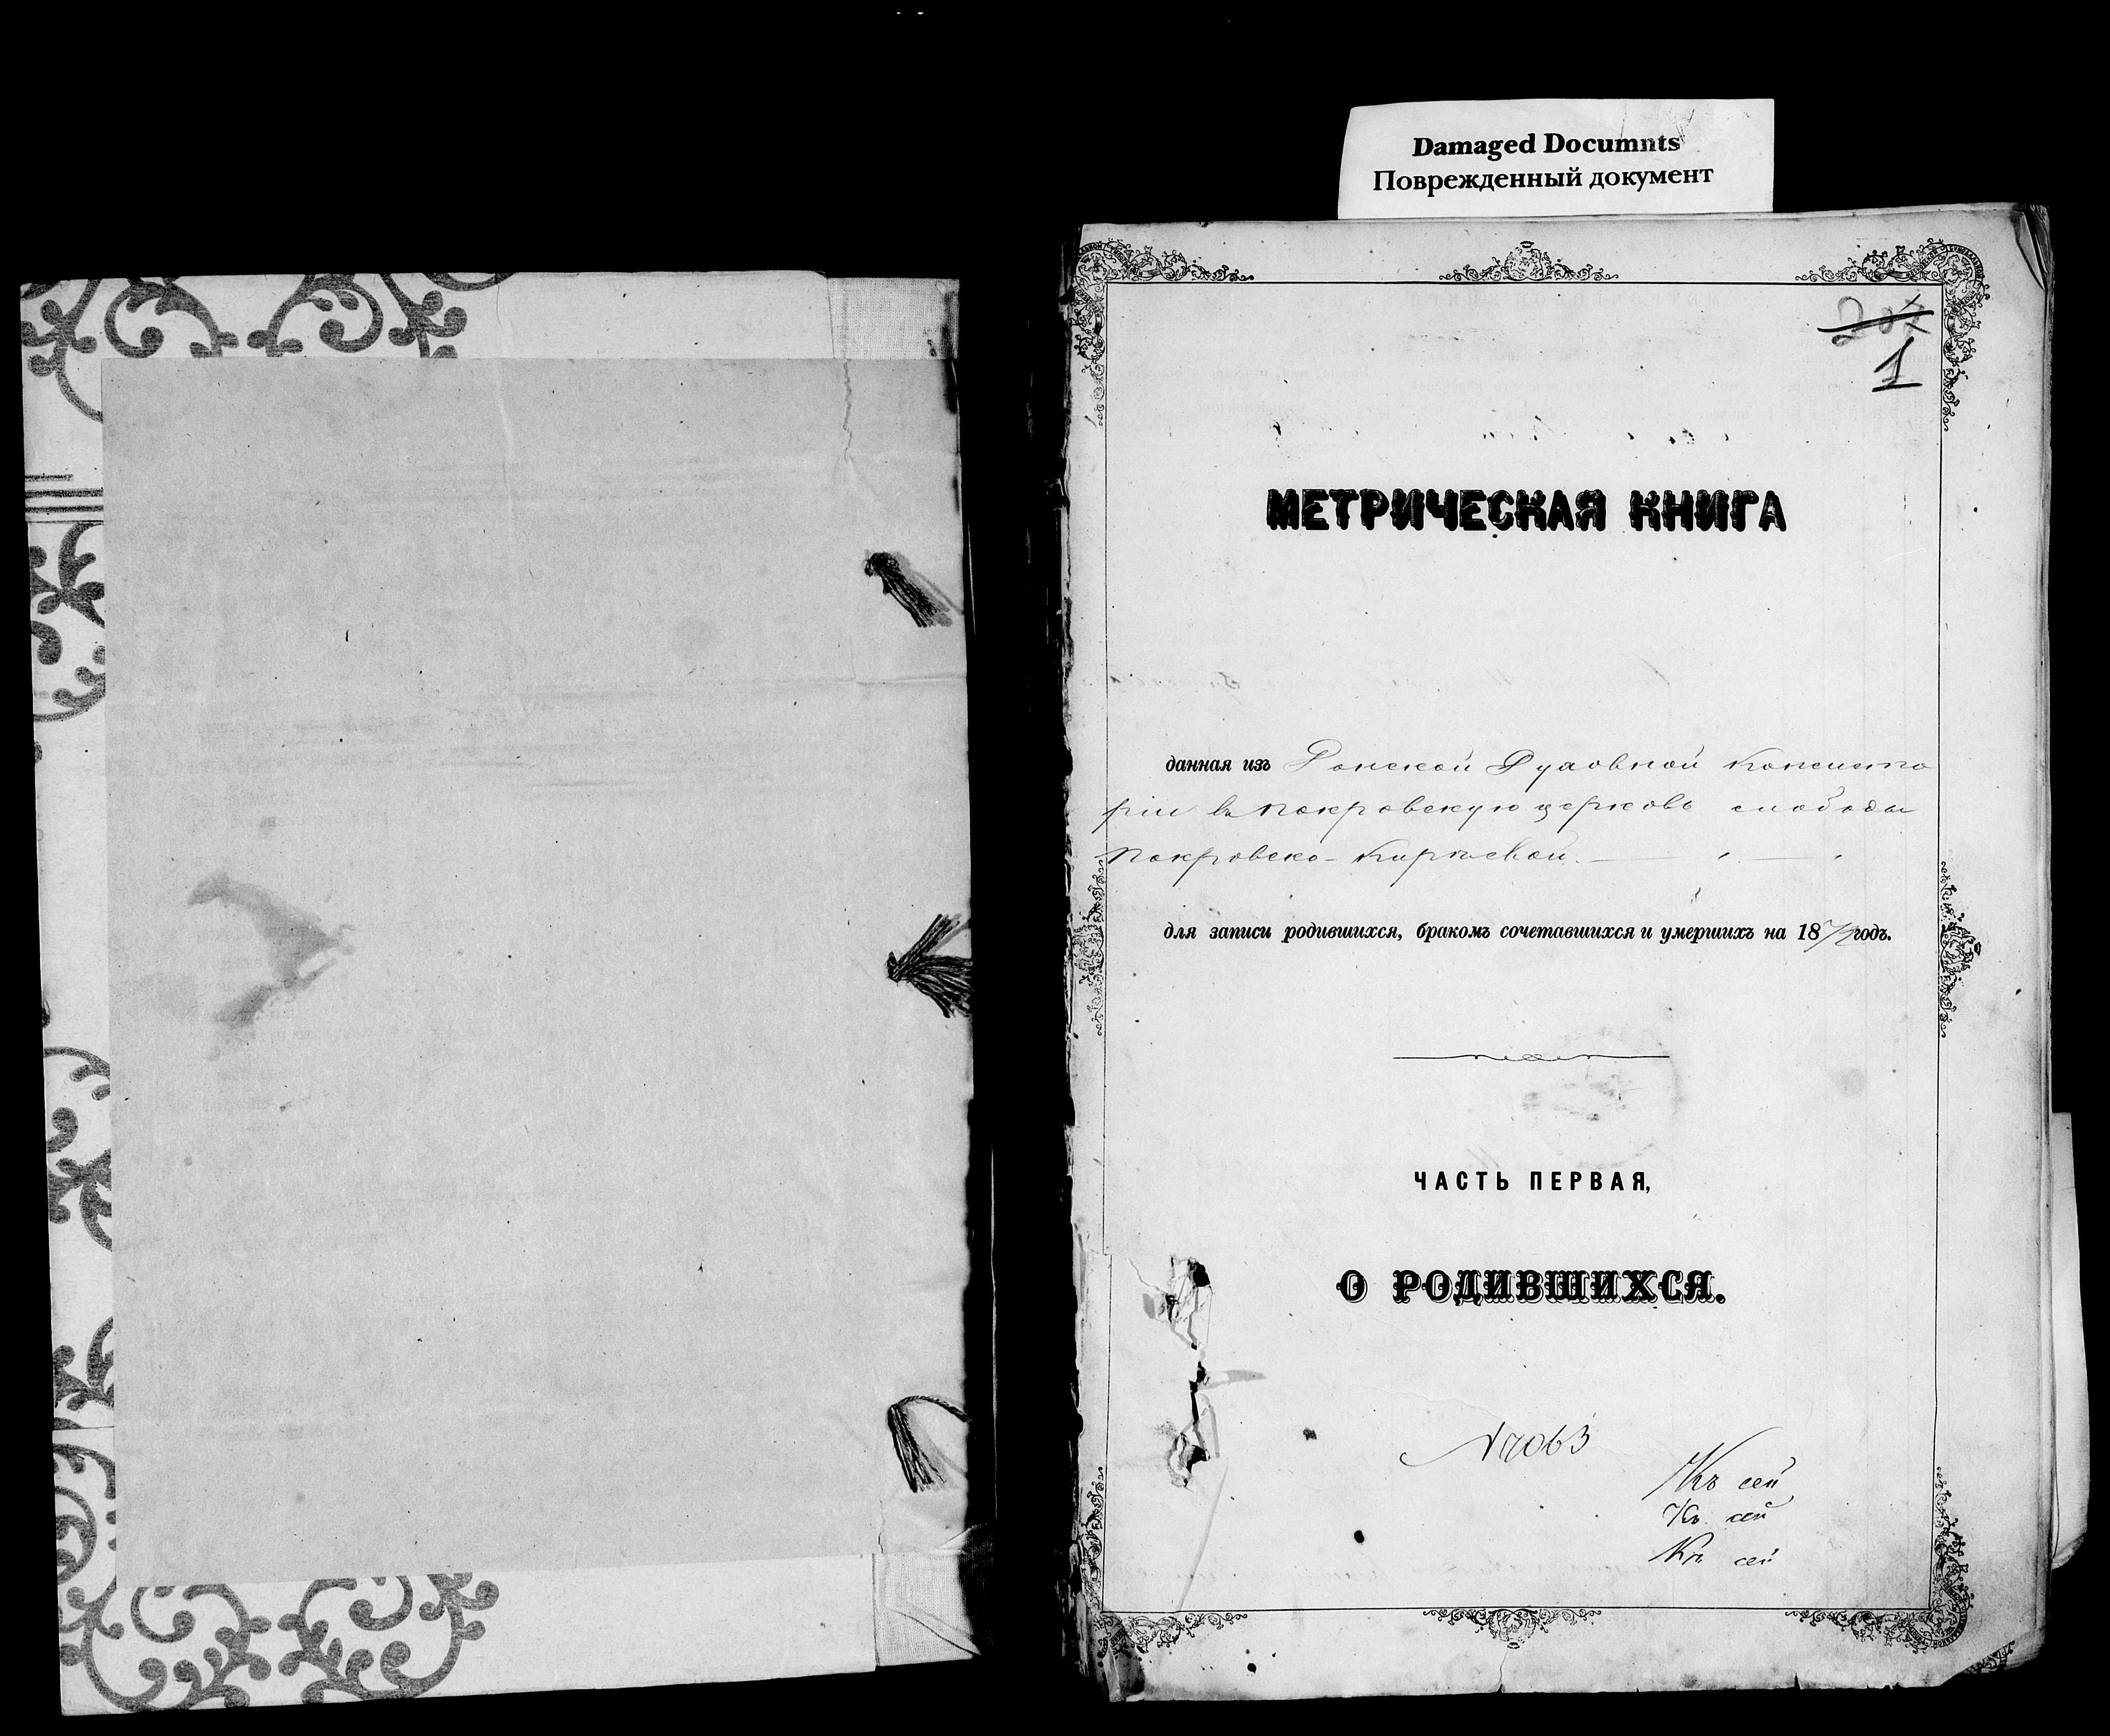 Damaged Documnts
Поврежденный документ
1
МЕТРИЧЕСКАЯ КНИГА
данная изъ Донской Духовной Консисто
ріи въ Покровскую церковь слободы
Покровско-Кирѣевой.
для записи родившихся, бракомъ сочетавшихся и умершихъ на 18 годъ.
ЧАСТЬ ПЕРВАЯ,
О РОДИВШИХСЯ.
№ 7063
Къ сей
Къ сей
Къ сей